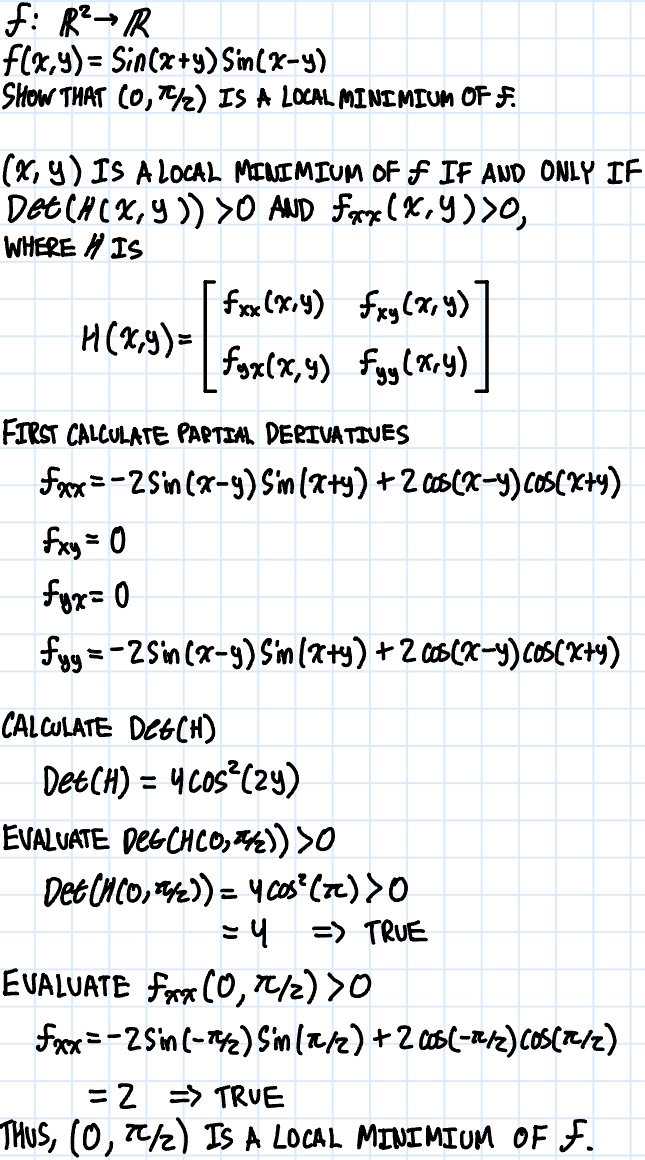 f: ℝ² → ℝ
f(x,y) = Sin(x+y) Sin(x-y)
SHOW THAT (0, π/2) IS A LOCAL MINIMIUM OF f.
(x, y) IS A LOCAL MINIMIUM OF f IF AND ONLY IF
Det(H(x, y)) >0 AND fₓₓ(x,y)>0,
WHERE H IS
H(x,y) = [ f_xx(x,y) f_xy(x,y)
f_yx(x,y) f_yy(x,y) ]
FIRST CALCULATE PARTIAL DERIVATIVES
f_xx = -2 Sin(x-y) Sin(x+y) + 2 cos(x-y) cos(x+y)
f_xy = 0
f_yx = 0
f_yy = -2 Sin(x-y) Sin(x+y) + 2 cos(x-y) cos(x+y)
CALCULATE Det(H)
Det(H) = 4 cos²(2y)
EVALUATE Det(H(0, π/2)) >0
Det(H(0, π/2)) = 4 cos²(π) >0
= 4 => TRUE
EVALUATE f_xx(0, π/2) >0
f_xx = -2 Sin(-π/2) Sin(π/2) + 2 cos(-π/2) cos(π/2)
= 2 => TRUE
THUS, (0, π/2) IS A LOCAL MINIMIUM OF f.